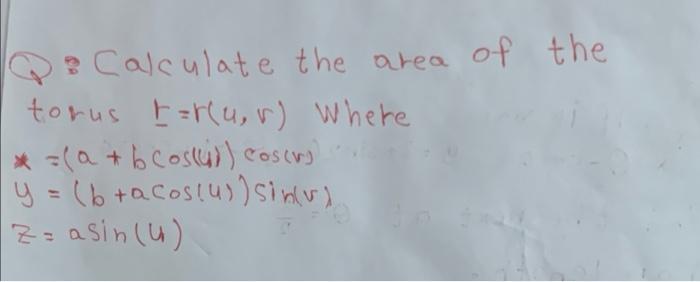 Q: Calculate the area of the
torus r=r(u,v) Where
x =(a + bcos(u)) cos(v)
y = (b +acos(u))sin(v)
z= asin(u)